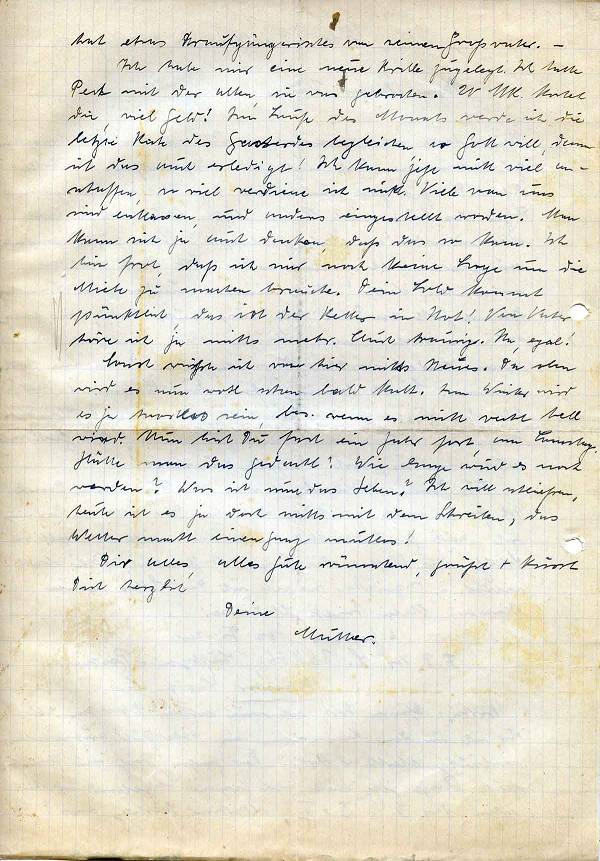 hat etwas Draufgängerisches von seinem Großvater. –
Ich habe mir eine neue Brille zugelegt. Ich hatte
Pech mit der alten, sie war gebrochen. 20 MK. kostet
die, viel Geld! Im Laufe des Monats werde ich die
letzte Rate des Gasherdes begleichen so Gott will, dann
ist das auch erledigt! Ich kann jetzt nicht viel an-
schaffen, so viel verdiene ich nicht. Viele von uns
sind entlassen, und anders eingestellt worden. Man
kann sich ja auch denken, daß das so kam. Ich
bin froh, daß ich mir noch keine Sorge um die
Miete zu machen brauche. Dein Sold kommt
pünktlich, das ist der Retter in Not! Von Vater
höre ich ja nichts mehr. Auch traurig. Na, egal!
Sonst wüßte ich von hier nichts Neues. Da oben
wird es nun wohl schon bald kalt. Im Winter wird
es ja trostlos sein, bes. wenn es nicht recht hell
wird. Nun bist Du fast ein Jahr fort, am Samstag.
Hätte man das gedacht? Wie lange wird es noch
werden? Was ist nun das Leben? Ich will schließen,
heute ist es ja doch nichts mit dem Schreiben, das
Wetter macht einen ganz mutlos!
Dir alles, alles Gute wünschend, grüßt + küsst
Dich herzlich
Deine
Mutter.